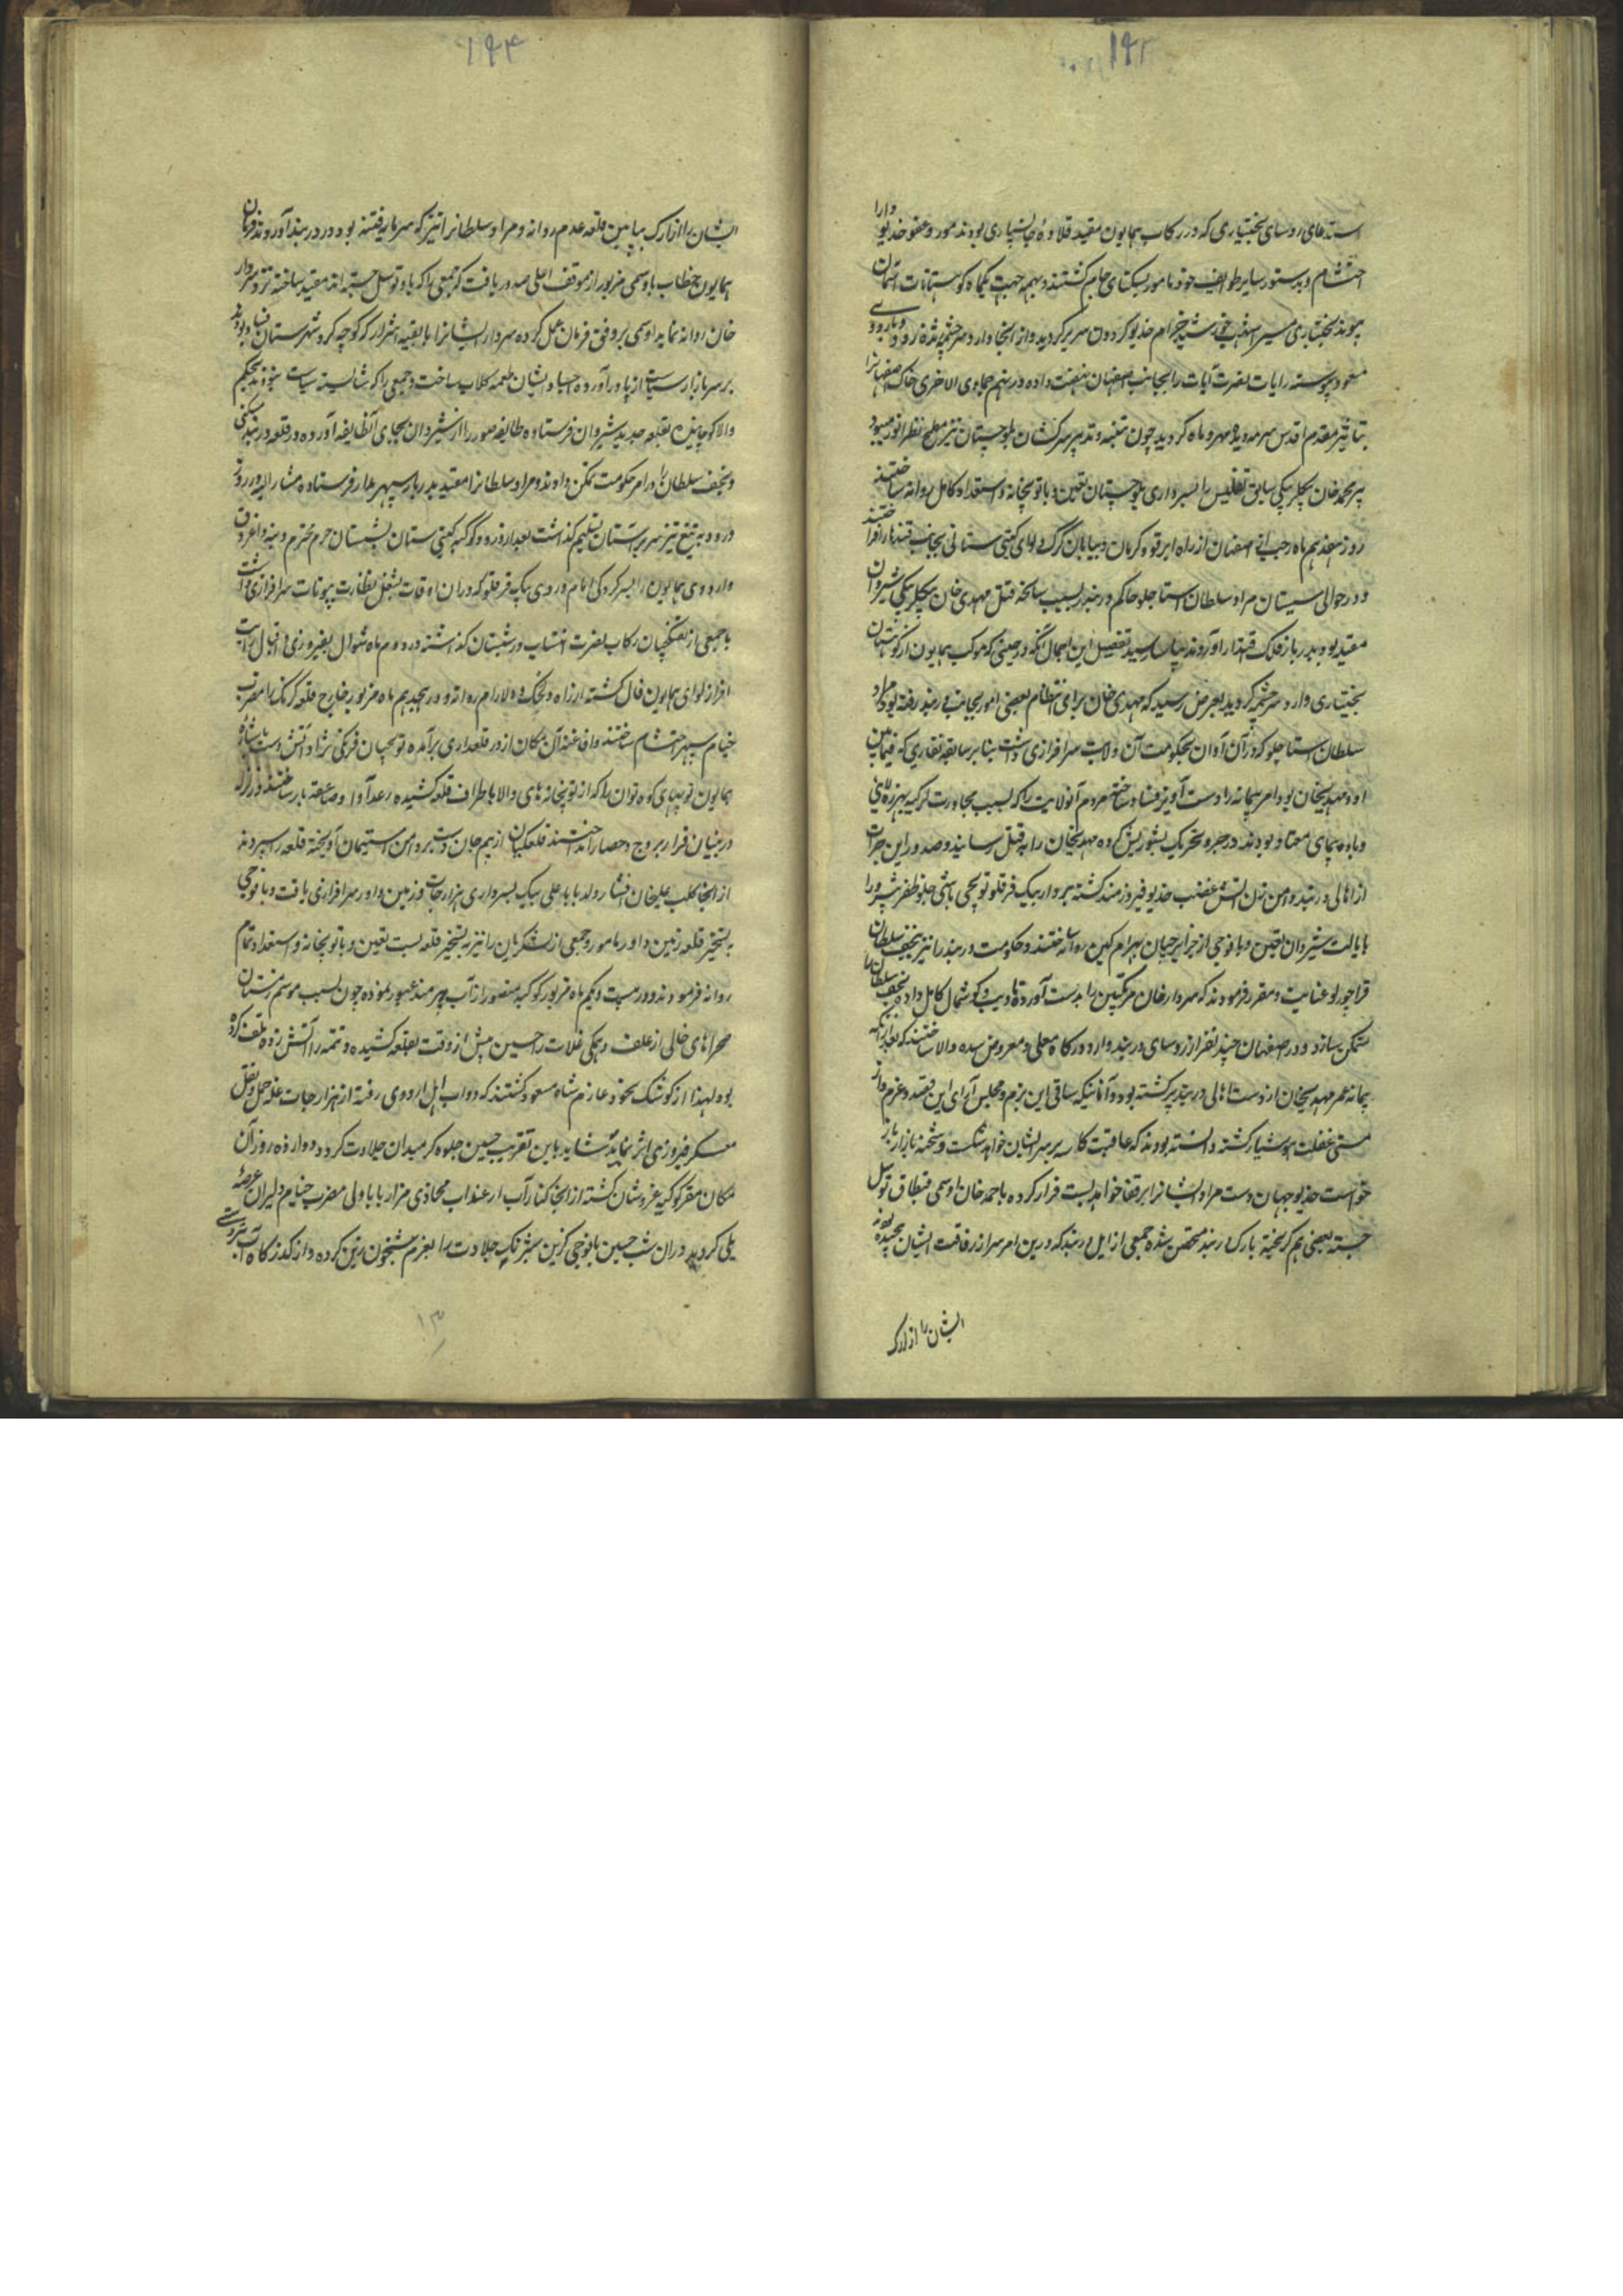 ۱۹۳
استدعای روسای بختیاری که در رکاب همایون مقید قلاده جانسپاری بودند مورد عفو خدیو دارا
احتشام و بدستور سایر طوایف خود مامور بسکنای جام گشتند و بهمه جهت یکماه کوهستانات
بختیاری مسیر اشهب خورشید خرام خدیو گردون سریر گردید و از آنجا وارد سرچشمه زنده رود و بار دوی
مسعود پیوسته رایات نصرت آیات را بجانب اصفهان نهضت داده در نهم جمادی الاخری خاک اصفهانرا
بتاثیر مقدم اقدس سرمه دیده مهر و ماه گردید چون تنبیه و تدمیر سرکشان بلوچستان نیز مطمح نظر انور میبود
پیر محمد خان بیگلربیگی سابق تفلیس را بسرداری بلوچستان تعیین و با توپخانه و استعداد کامل روانه ساختند
روز هفدهم ماه رجب از اصفهان از راه ابرقوه و کرمان و بیابان گرگ لوای گیتی ستانی بجانب قندهار افراختند
و در حوالی سیستان مراد سلطان استاجلو حاکم دربند بسبب سانحه قتل مهدی خان بیگلربیگی شیروان
مقید بود بدربار فلک اقتدار آوردند بیاسا رسید تفصیل این اجمال آنکه در حینی که موکب همایون از کوهستان
بختیاری وارد سرچشمه گردید بعرض رسید که مهدی خان برای انتظام بعضی امور بجانب دربند رفته بود مراد
سلطان استاجلو که در آن آوان بحکومت آن ولایت سرافرازی داشت بنا بر سابقه نقاری که فیمابین
او و مهدیخان بود امر بهانه را دست آویز فساد ساخته مردم آنولایت را که بسبب مجاورت لزگیه بهرزه لائی
و باده پیمای معتاد بودند در جبر و تحریک بشورش کرده مهدیخان را بقتل رسانیدند صدور این جرات
از اهالی دربند دامن زن آتش غضب خدیو فیروزمند گشته سردار بیک قرقلو توپچی باشی جلو ظفر پیشرو را
بایالت شیروان تعیین و با فوجی از جزایرچیان بهرام کین روانه ساختند و حکومت دربند را نیز بنجف سلطان
قراچورلو عنایت و مقرر فرمودند که سردار خان مرتکبین را بدست آورده تادیب و گوشمال کامل داده نجف سلطان را
متمکن سازد و در اصفهان چند نفر از روسای دربند وارد درگاه معلی و معروض سده والا ساختند که بعد از آنکه
پیمانه عمر مهدیخان از دست اهالی دربند پر گشته بود و آنانیکه ساقی این بزم و مجلس آرای این قصد و عزم
مستی غفلت هوشیار گشته دانسته بودند که عاقبت کاسه بر سر ایشان خواهد شکست و شحنه بازار باز
خواست خدیو جهان دست مراد ایشانرا بر قفا خواهد بست فرار کرده باحمد خان اوسمی قیطاق توسل
جسته بعضی هم گریخته بارک دربند متحصن شده جمعی از ایل دربند که درین امر سر از رفاقت ایشان پیچیده بودند
ایشان را از ارک
۱۹۴
ایشان را از ارک بپایین قلعه عدم روانه و مراد سلطانرا نیز که سرمایه فتنه بود در دربند آوردند فرمان
همایون بخطاب باوسمی مزبور از موقف اعلی صدور یافت که جمعی را که باو توسل جسته اند مقید ساخته نزد سردار
خان روانه نماید اوسمی بر وفق فرمان عمل کرده سردار ایشانرا با بقیه اشرار که کوچه گرد شهرستان بودند
بر سر بازار سیاست از پا درآورده اجساد ایشان طعمه کلاب ساخت و جمعی را که شایسته سیاست نبودند بحکم
والا کوچانیده بقلعه جدید شیروان فرستاده طایفه را از شیروان بجای آنطایفه آورده در قلعه دربند سکنی
و نجف سلطان را در امر حکومت تمکن دادند و مراد سلطانرا مقید بدربار سپهر مدار فرستاده مشار الیه در روز
ورود به تیغ تیز سر بستان تسلیم گذاشت بعد از ورود کوکبه گیتی ستان بسیستان حرم محترم و بنه و اغروق
و اردوی همایون را بسرکردگی امام وردی بیک قرقلو که در ان اوقات بشغل نظارت بیوتات سرافرازی داشت
با جمعی از تفنگچیان رکاب نصرت انتساب در سیستان گذاشته در دوم ماه شوال بفیروزی و اقبال رایت
افراز لوای همایون فال گشته از راه دلخک و دلارام روانه و در هجدهم ماه مزبور خارج قلعه گرشک را مضرب
خیام سپهر احتشام ساختند و افاغنه آن مکان از در قلعداری برآمده توپچیان فرنگی نژاد آتش دست باشاره
همایون توپهای کوه توان را که از توپخانه های والا باطراف قلعه کشیده رعد آوا و صاعقه بار ساختند زلزله
در بنیان قرار بروج و حصار انداختند قلعگیان از بیم جان دست بر دامن استیمان آویخته قلعه را سپردند
از آنجا کلب علیخان افشار ولد بابا علی بیک بسرداری هزارجات و زمین داور سرافرازی یافت و با فوجی
بتسخیر قلعه زمین داور مامور و جمعی از لشکریان را نیز به تسخیر قلعه بست تعیین و با توپخانه و استعداد تمام
روانه فرمودند و در بیست و یکم ماه مزبور کوکبه منصور از آب هیرمند عبور نموده چون بسبب موسم زمستان
صحراهای خالی از علف و همگی غلات را حسین پیش از وقت بقلعه کشیده و تتمه را آتش زده تلف کرده
بود لهذا از کوشک نخود عازم شاه مسعود گشتند که دواب اهل اردوی رفته از هزارجات غله حمل و نقل
معسکر فیروزی اثر نمایند شاید باین تقریب حسین جلوه گر میدان جلادت گردد دوازده روز آن
مکان مقر کوکبه عز و شان گشته از آنجا کنار آب ارغنداب محاذی مزار بابا ولی مضرب خیام دلیران عرصهٔ
یلی گردید در ان شب حسین با فوجی گزین شبرنگ جلادت را بعزم شبخون زین کرده و از گذرگاه آب
۱۳